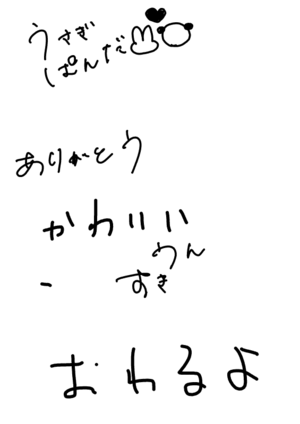 うさぎ
ぱんだ
ありがとう
かわいい
うん
ー すき
おわるよ